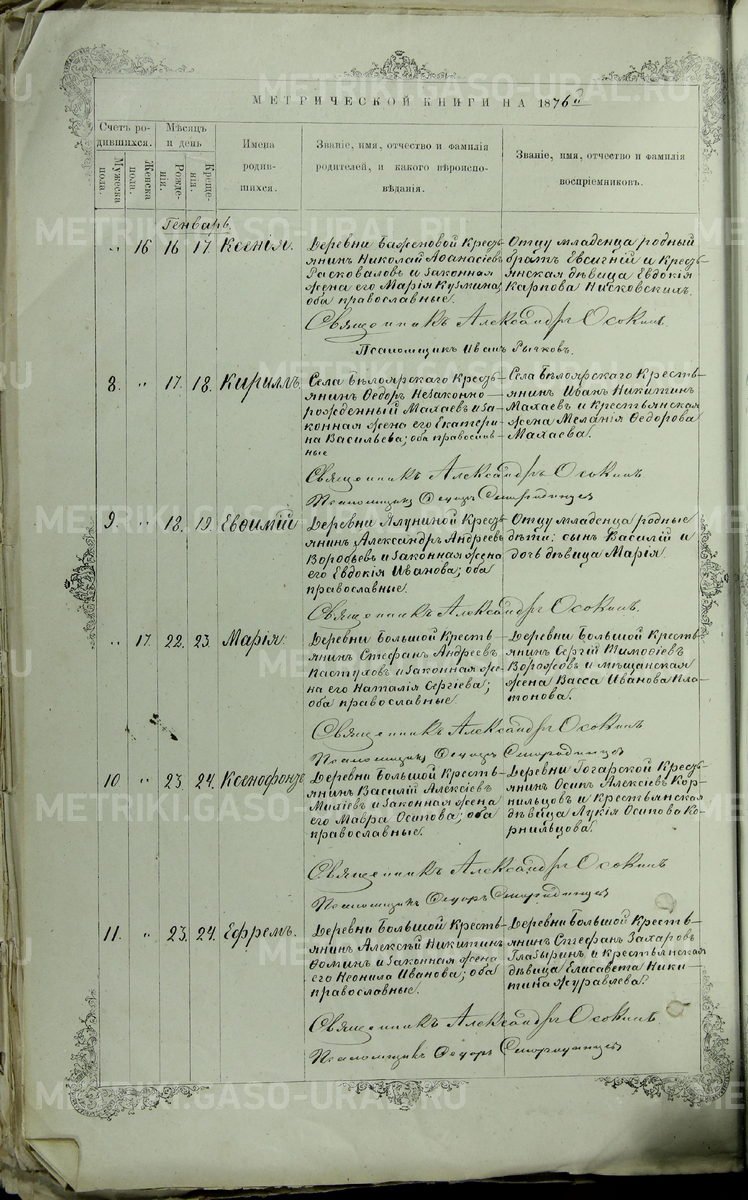 МЕТРИЧЕСКОЙ КНИГИ НА 1876й
Счетъ ро-
дившихся.
Мужеска
пола.
Женска
пола.
Мѣсяцъ
и день
Рожде-
нія.
Креще-
нія.
Имена
родив-
шихся.
Званіе, имя, отчество и фамилія
родителей, и какого вѣроиспо-
вѣданія.
Званіе, имя, отчество и фамилія
воспріемниковъ.
Генварь.
" 16 16 17 Ксенія.
Деревни Баженовой Кресть-
янинъ Николай Аѳанасіевъ
Расковаловъ и законная
жена его Марія Кузмина;
оба православные.
Отцу младенца родный
братъ Евсигній и Кресть-
янская дѣвица Евдокія
Карпова
Священникъ Александръ Осокинъ.
Псаломщикъ Иванъ Рычковъ.
8. " 17. 18. Кириллъ.
Села Бѣлоярскаго Кресть-
янинъ Ѳедоръ Незаконно-
рожденный Махаевъ и за-
конная жена его Екатери-
на Васильева; оба православ-
ные
Села Бѣлоярскаго Кресть-
янинъ Иванъ Никитинъ
Махаевъ и Крестьянская
жена Меланія Ѳедорова
Махаева.
Священникъ Александръ Осокинъ
Псаломщикъ Ѳедоръ Смородинцевъ
9. " 18. 19. Евѳимій
Деревни Ялуниной Кресть-
янинъ Александръ Андреевъ
Воробьевъ и законная жена
его Евдокія Иванова; оба
православные.
Отцу младенца родные
дѣти: сынъ Василій и
дочь дѣвица Марія.
Священникъ Александръ Осокинъ.
" 17. 22. 23. Марія.
Деревни Большой Кресть-
янинъ Стефанъ Андреевъ
Пастуховъ и законная же-
на его Наталія Сергіева;
оба православные
Деревни Большой Кресть-
янинъ Сергій Тимоѳіевъ
Ворожовъ и мѣщанская
жена Васса Иванова Пла-
тонова.
Священникъ Александръ Осокинъ
Псаломщикъ Ѳедоръ Смородинцевъ
10 " 23 24. Ксенофонтъ
Деревни Большой Кресть-
янинъ Василій Алексіевъ
Михіевъ и законная жена
его Мавра Осипова; оба
православные.
Деревни Гогарской Кресть-
янинъ Осипъ Алексіевъ Кор-
нильцовъ и Крестьянская
дѣвица Лукія Осипова Ко-
рнильцова.
Священникъ Александръ Осокинъ
Псаломщикъ Ѳедоръ Смородинцевъ
11. " 23. 24. Ефремъ.
Деревни Большой Кресть-
янинъ Алексѣй Никитинъ
Ѳоминъ и законная жена
его Неонила Иванова; оба
православные.
Деревни Большой Кресть-
янинъ Стефанъ Захаровъ
Глазыринъ и Крестьянская
дѣвица Елисавета Ники-
тина Журавлева.
Священникъ Александръ Осокинъ.
Псаломщикъ Ѳедоръ Смородинцевъ
METRIKI.GASO-URAL.RU